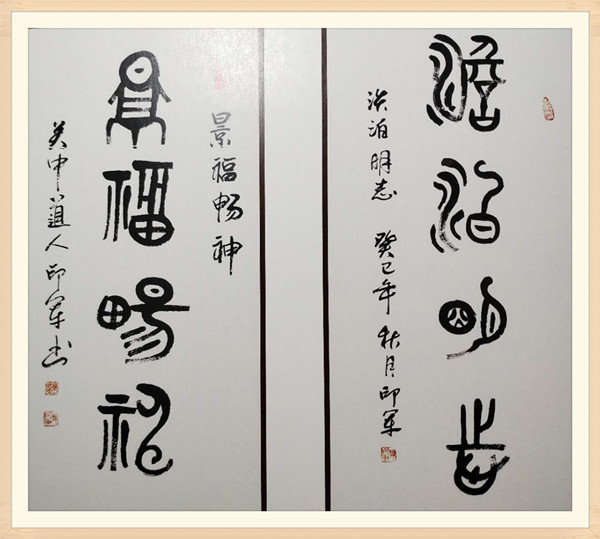 澹泊明志
淡泊明志 癸巳年 秋月 印军
景福畅神
景福畅神
关中道人 印军书